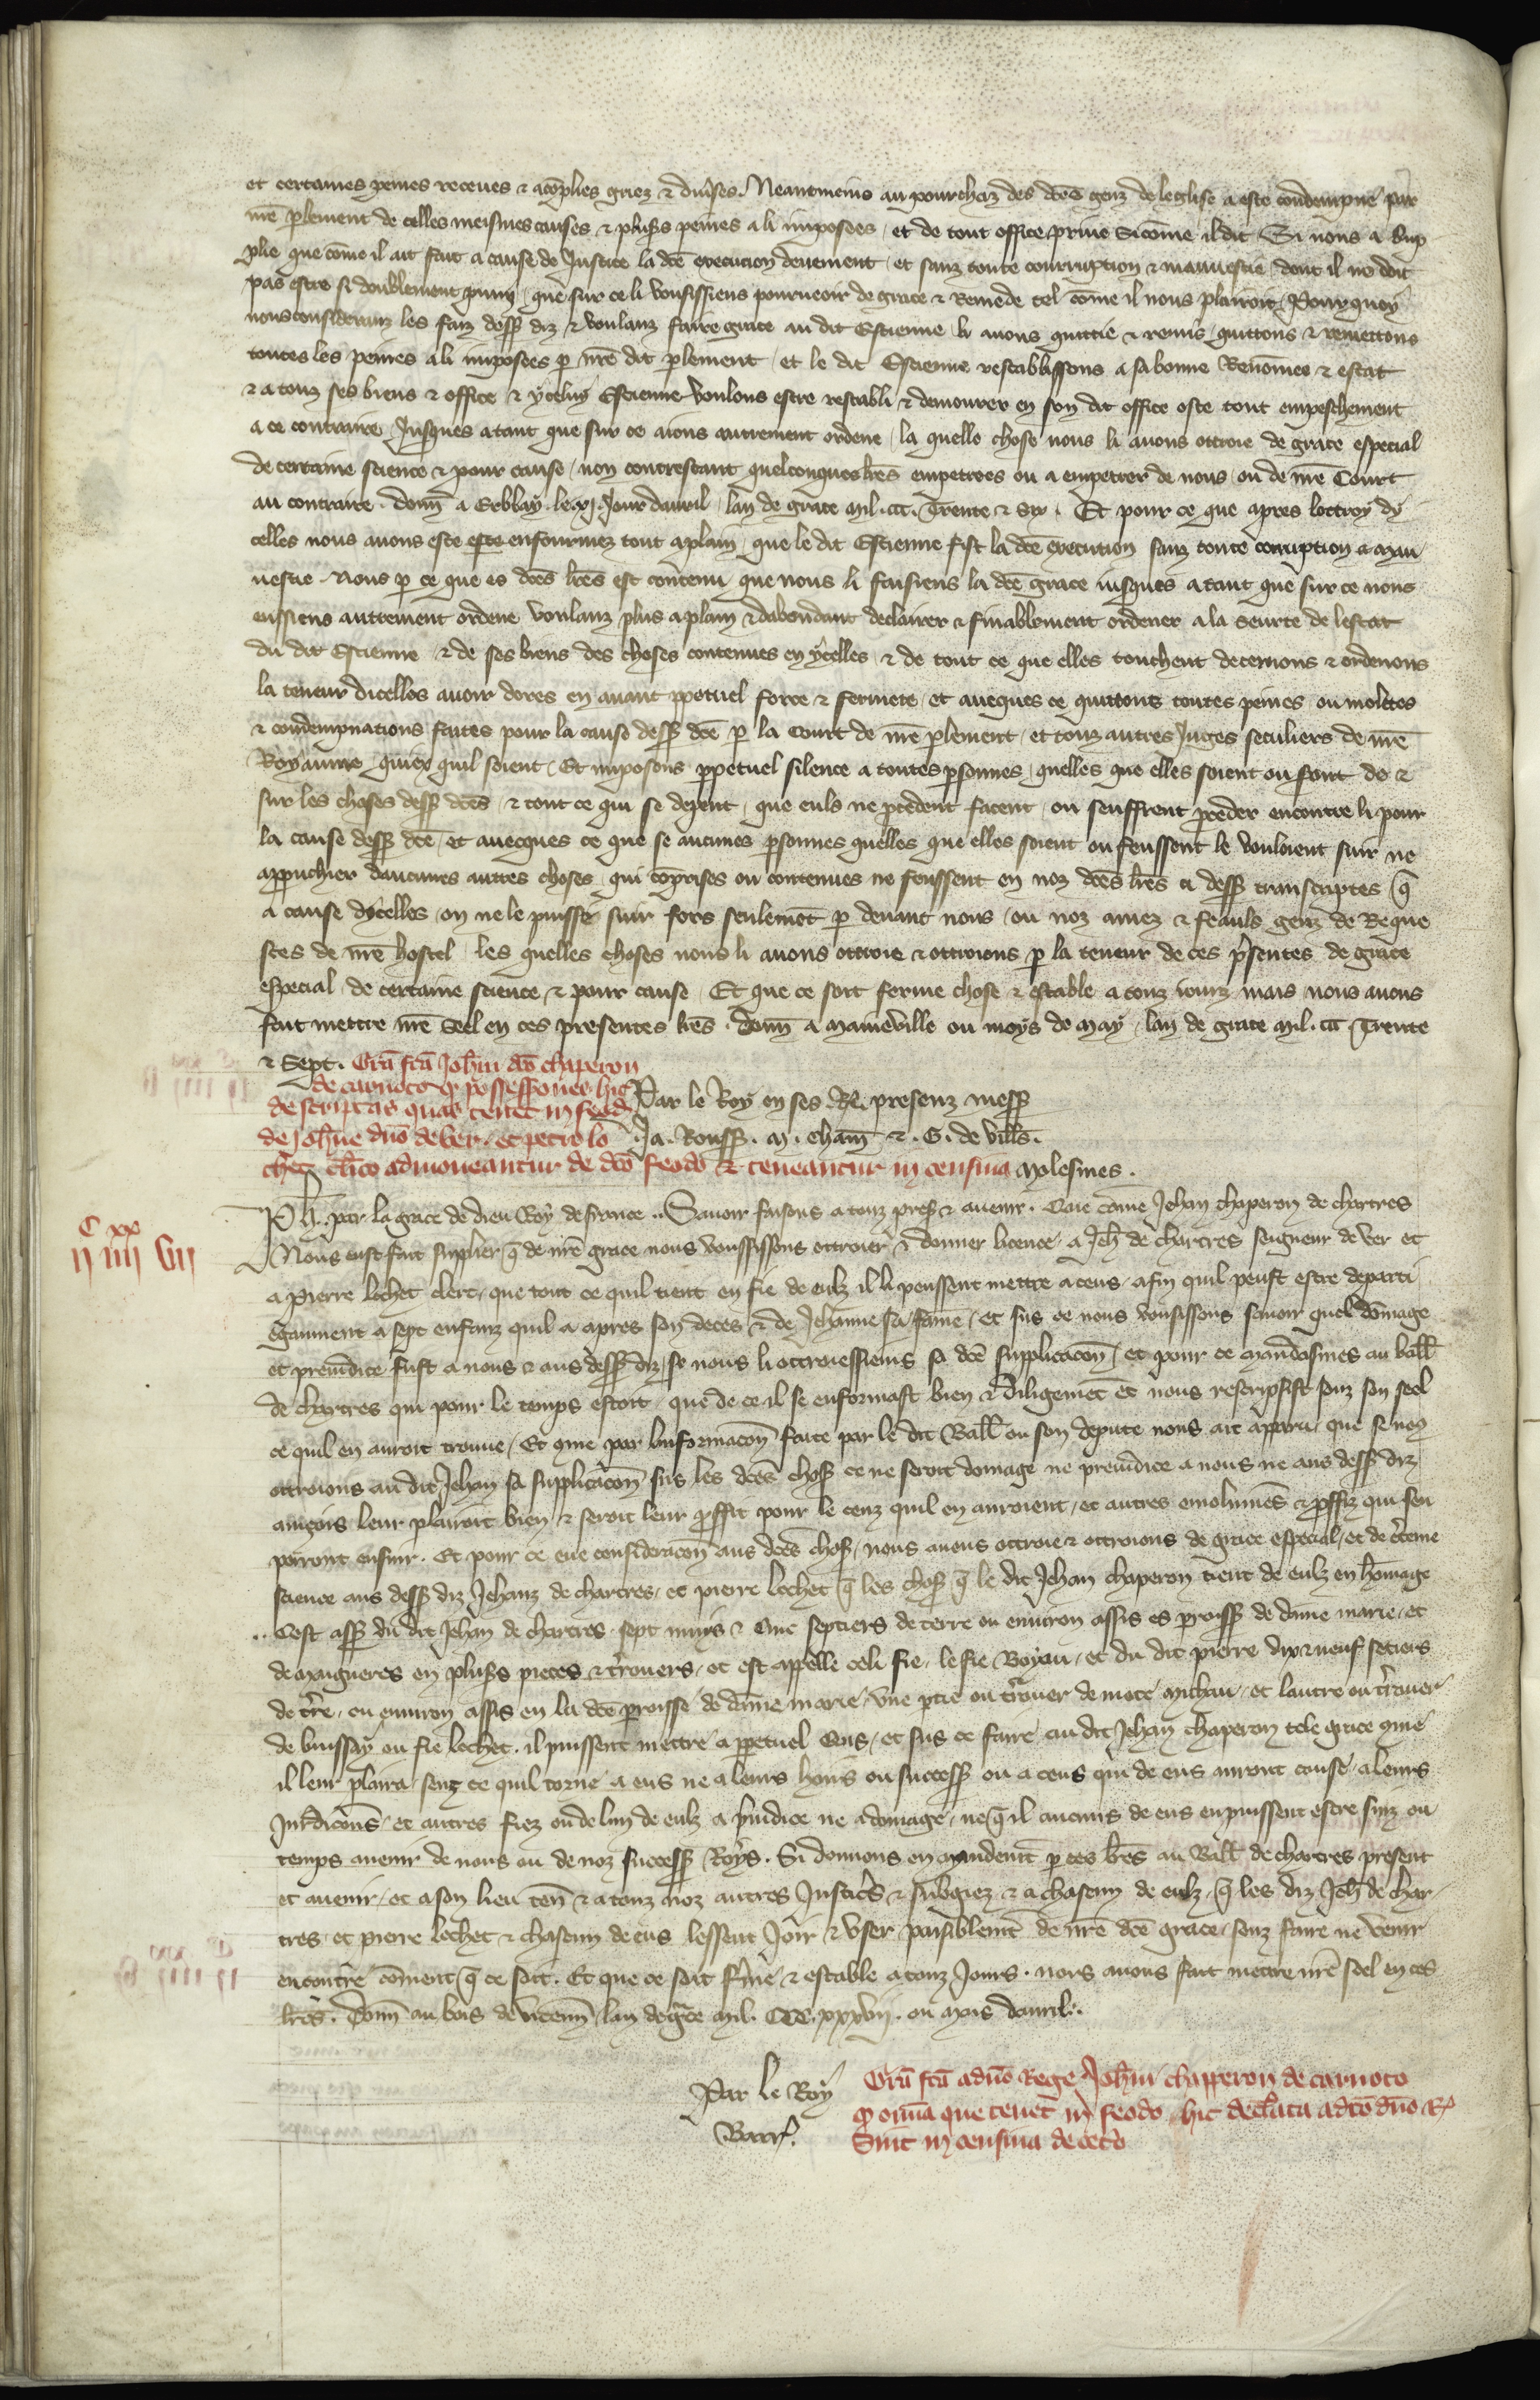 et certaines peines receues & acōplies griez & diuˀses. Neantmeins au pourchaz des dc̄es genz de leglise a este condempne par
nr̄e plement de celles meismes causes & plusˀs peines a li imposees, et de tout office priue si cōme il dit Si nous a sup
plie que cōme il ait fait a cause de Justice la dc̄e execucion deuement, et sanz toute courrupcion & mauuestie, dont il ne doit
pas estre si doublement puny, que sur ce li vousissiens pourueoir de grace & Remede tel cōme il nous plairoit. Pourquoy
nous consideranz les faiz dess diz & voulanz faire grace au dit Estienne li auons quittie & remis, quittons & remettons
toutes les peines a li imposees p nr̄e dit plement, et le dit Estienne restablissons a sa bonne Renōmee & estat
& a touz ses biens & office & yceluy Estienne voulons estre restabli & demourer en son dit office oste tout empeschement
a ce contraire, Jusques a tant que sur ce aions autrement ordene, la quelle chose nous li auons ottroie de grace especial
de certaine science & pour cause, non contrestant quelconques lr̄es empetrees ou a empetrer de nous, ou de nr̄e Court
au contraire. Donn̄ a Erblay. le xj. Jour dauril, lan de grace mil. ccc. Trente & Six. Et pour ce que apres lottroy dy
celles nous auons este este enfourmez tout a plain, que le dit Estienne fist la dc̄e execucion sanz toute corrupcion & mau
uestie. Nous p ce que es dc̄es lr̄es est contenu que nous li faisiens la dc̄e grace iusques a tant que sur ce nous
eussiens autrement ordene voulanz plus a plain & dabondant declairer & finablement ordener a la seurte de lestat
du dit Estienne & de ses biens des choses contenues en ycelles & de tout ce que elles touchent decernons & ordenons
la teneur dicelles auoir dores en auant ppetuel force & fermete, et auecques ce quittons toutes peines ou molestes
& condempnations faites pour la cause dess dc̄e p la Court de nr̄e plement, et touz autres Juges seculiers de nr̄e
Royaume quiex quil soient, Et imposons ppetuel silence a toutes psonnes, quelles que elles soient ou sont de &
sur les choses dess dc̄es & tout ce qui se depent, que euls ne pcedent facent, ou seuffrent pceder encontre li pour
la cause dess dc̄e, et auecques ce que se aucunes psonnes quelles que elles soient ou feussent le vouloient suir ne
approuchier daucunes autres choses, qui cōprises ou contenues ne feussent en noz dc̄es lr̄es ci dess transcriptes q̄
a cause dycelles, on ne le puisse suir fors seulemēt p deuant nous, ou noz amez & feauls genz de Reque
stes de nr̄e hostel, les quelles choses nous li auons ottroie & ottroions p la teneur de ces pˀsentes de grace
especial de certaine science & pour cause, Et que ce soit ferme chose & estable a touz iourz mais nous auons
fait mettre nr̄e Seel en ces presentes lr̄es. Donn̄ a Maineville ou moys de May, lan de grace mil. ccc Trente
& Sept. Grā fcā Joh̄ni dc̄o chaperon
de carnoto q possessiones hic
descriptas quas tenet in feodˀ
de Joh̄ne dn̄o de Ver, et Petro lo
chet cl̄ico admoueantur de dc̄o feodo & teneantur in censiua
Par le Roy en ses Re. presenz mess
Ja. Rouss. M. cham̄ & G. de Vill̄s.
Molesmes.
C xx
ii iiii Vii
Ph̄. par la grace de dieu Roy de france .. Sauoir faisons a touz pres & auenir. Que cōme Jehan chaperon de chartres
Nous eust fait suplier q̄ de nr̄e grace nous voussissons ottroier & donner licence, a Jeh̄ de chartres seigneur de Ver et
a Pierre lochet clerc, que tout ce quil tient en fie de eulz il li peussent mettre a cens, afin quil peust estre departi
egaument a sept enfanz quil a apres son deces & de Jehanne sa fame, et sus ce nous vousissons sauoir quel dōmage
et preiudice fust a nous & aus dess diz, se nous li ottroiessiens sa dc̄e supplicacōn, et pour ce mandasmes au baill̄
de chartres qui pour le temps estoit, que de ce il se enformast bien & diligemēt et nous rescripsist souz son seel
ce quil en auroit trouue, Et cōme par linformacōn faite par le dit Baill̄ ou son depute nous ait apparu que se nous
ottroions au dit Jehan sa supplicacōn sus les dc̄es chos ce ne seroit domage ne preiudice a nous ne aus dess diz
aincois leur plairoit bien & seroit leur pffit pour le cenz quil en auroient, et autres emolumēs & pffiz qui sen
porront ensuir. Et pour ce eue consideracōn aus dc̄es chos, nous auons ottroie & ottroions de grace especial, et de cˀteine
science aus dess diz Jehanz de chartres, et Pierre Lochet q̄ les chos q̄ le dit Jehan chaperon tient de eulz en hōmage
.. Cest ass du dit Jehan de chartres. sept muys & vnc septiers de terre ou enuiron assis es proiss de dame marie, et
de Maigneres en plusˀs pieces & tˀrouers, et est appelle celi fie, le fie Boyau, et du dit Pierre dix & neuf setiers
de tˀre, ou enuiron assis en la dc̄e proisse de dame marie, vne ptie ou tˀrouer de mote Michau, et lautre ou tˀrouer
de buissay ou fie lochet. il puissent mettre a ppetuel Cens, et sus ce faire au dit Jehan chaperon tele grace cōme
il leur plaira, senz ce quil torne a eus ne a leurs hoirs ou success ou a ceus qui de eus auront cause, a leurs
Jurˀdicōns et autres fiez ou de lun de eulz a pˀiudice ne a domage, ne q̄ il aucuns de eus en puissent estre suiz ou
temps auenir de nous ou de noz success Roys. Si donnons en mandemt p ces lr̄es au Baill̄ de chartres present
et auenir, et a son lieu ten̄ & a touz noz autres Justicˀs & subgiez & a chascun de eulz, q̄ les diz Jeh̄ de char
tres, et Pierre lochet & chascun de eus lessent Joir & vser paisiblemt de nr̄e dc̄e grace, senz faire ne venir
encontre cōment q̄ ce soit. Et que ce soit fˀme & estable a touz Jours. nous auons fait mettre nr̄e seel en ces
lr̄es. Donn̄ au bois de vicenn̄ lan de gˀce mil. CCC. xxxvij. ou mois dauril.
Par le Roy
Barr.
Grā fcā a dn̄o Rege Joh̄ni chapperon de carnoto
q̄ om̄ia que tenet in feodo, hic declˀata a dc̄o dn̄o R
Sint in censiua de cetˀo